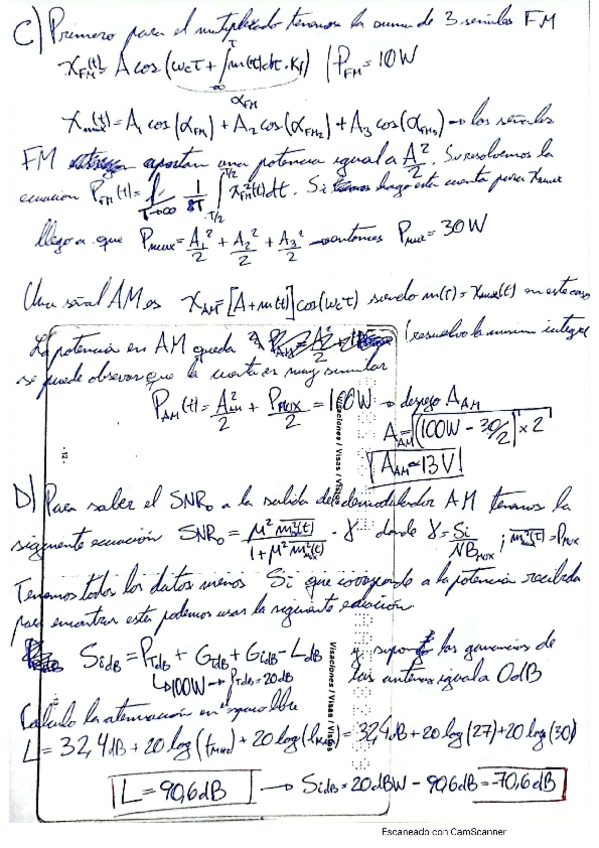 C) Primero para el multiplexado tenemos la suma de 3 señales FM
x_FM(t) = A cos (ω_c t + ∫_{-∞}^{t} m(t) dt · K_f) / P_FM = 10 W
α_FM
x_mux(t) = A_1 cos (α_FM1) + A_2 cos (α_FM2) + A_3 cos (α_FM3) → las señales
FM aportan una potencia igual a A²/2. Si resolvemos la
ecuacion P_FM(t) = lim_{T→∞} 1/T ∫_{-T/2}^{T/2} x_FM²(t) dt. Si hago esta cuenta para x_mux
llego a que P_mux = A_1²/2 + A_2²/2 + A_3²/2 → entonces P_mux = 30 W
Una señal AM es x_AM = [A + m(t)] cos(ω_c t) siendo m(t) = x_mux(t) en este caso
La potencia en AM queda (resuelvo la misma integral
se puede observar que la cuenta es muy similar
P_AM(t) = A_AM²/2 + P_MUX/2 = 100 W → despejo A_AM
A_AM = √((100W - 30/2) × 2)
A_AM ≃ 13 V
D) Para saber el SNR_o a la salida del demodulador AM tenemos la
siguiente ecuación SNR_o = μ² m_n²(t) / (1 + μ² m_n²(t)) · γ donde γ = Si / N B_MUX ; m_n²(t) = P_MUX
Tenemos todos los datos menos Si que corresponde a la potencia recibida
para encontrar esta podemos usar la siguiente ecuación
Si_dB = P_TdB + G_TdB + G_idB - L_dB y las ganancias de
↳ 100W → P_TdB = 20 dB las antenas igual a 0dB
Calculo la atenuación en espacio libre
L = 32,4 dB + 20 log (f_MHz) + 20 log (l_Km) = 32,4 dB + 20 log (27) + 20 log (30)
L = 90,6 dB → Si_dB = 20 dBW - 90,6 dB = -70,6 dB
Visaciones / Visas / Vistos
Visaciones / Visas / Vistos
- 12 -
Escaneado con CamScanner